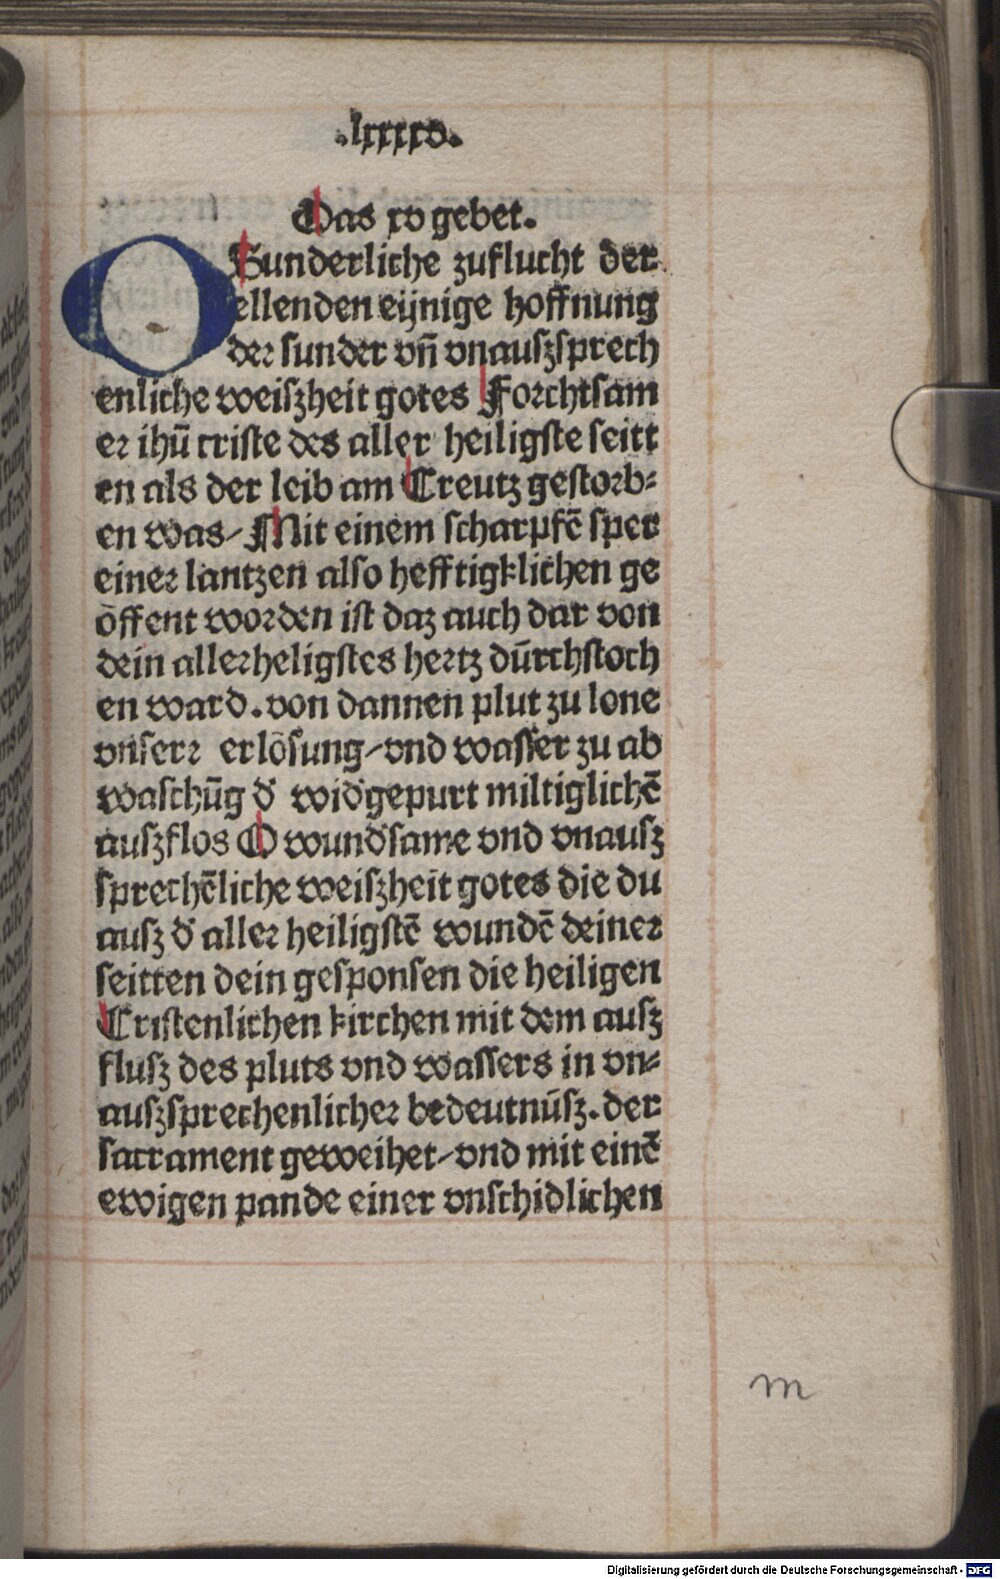 .lxxxxv.
Das xv gebet.
O Sunderliche zuflucht der
ellenden eijnige hoffnung
der sunder vn̄ vnauszsprech
enliche weiszheit gotes Forchtsam
er ihū criste des aller heiligste seitt
en als der leib am Creutz gestorb⸗
en was/ Mit einem scharpfē sper
einer lantzen also hefftigklichen ge
öffent worden ist daz auch dar von
dein allerheligstes hertz dūrchstoch
en ward. von dannen plut zu lone
vnserr erlösung/vnd wasser zu ab
waschūg d' wid'gepurt miltiglichē
auszflos O wund'same vnd vnausz
sprechēliche weiszheit gotes die du
ausz d' aller heiligstē wundē deiner
seitten dein gesponsen die heiligen
Cristenlichen kirchen mit dem ausz
flusz des pluts vnd wassers in vn⸗
auszsprechenlicher bedeutnūsz. der
sacrament geweihet/vnd mit einē
ewigen pande einer vnschidlichen
m
Digitalisierung gefördert durch die Deutsche Forschungsgemeinschaft - DFG